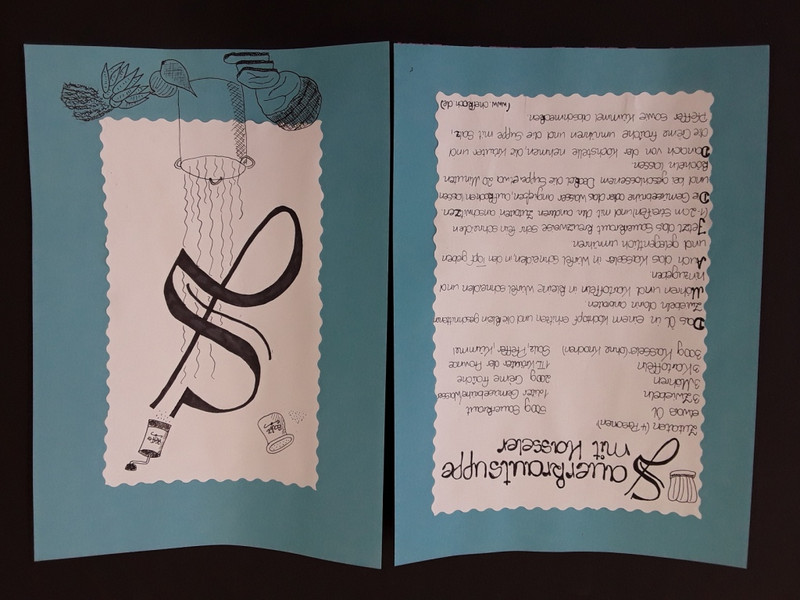 Sauerkrautsuppe
mit Kasseler
Zutaten (4 Personen)
etwas Öl 500g Sauerkraut
3 Zwiebeln 1 Liter Gemüsebrühe/Wasser
3 Möhren 200g Creme fraîche
3 Kartoffeln 1TL Kräuter der Provence
300g Kasseler (ohne Knochen) Salz, Pfeffer, Kümmel
Das Öl in einem Kochtopf erhitzen und die klein geschnittenen
Zwiebeln darin anbraten.
Möhren und Kartoffeln in kleine Würfel schneiden und
hinzugeben.
Auch das Kasseler in Würfel schneiden, in den Topf geben
und gelegentlich umrühren.
Jetzt das Sauerkraut kreuzweise sehr fein schneiden
(1-2cm Streifen) und mit den anderen Zutaten anschwitzen.
Die Gemüsebrühe oder das Wasser angießen, aufkochen lassen
und bei geschlossenem Deckel die Suppe etwa 20 Minuten
köcheln lassen.
Danach von der Kochstelle nehmen, die Kräuter und
die Creme fraîche umrühren und die Suppe mit Salz,
Pfeffer sowie Kümmel abschmecken.
(www.chefkoch.de)
S